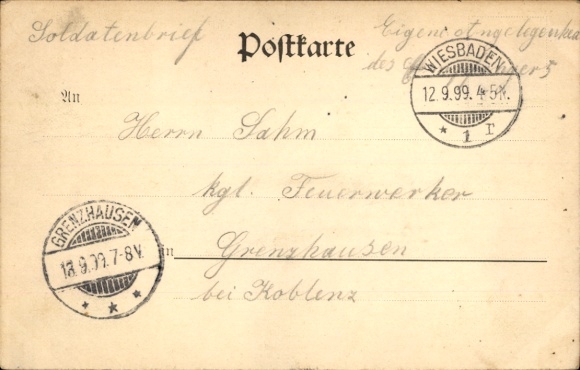 Soldatenbrief
Postkarte
Eigene Angelegenheit
des
WIESBADEN
12.9.99. 4-5N.
* 1 r
An
Herrn Sahm
kgl. Feuerwerker
GRENZHAUSEN
13.9.99. 7-8V.
* * *
in Grenzhausen
bei Koblenz